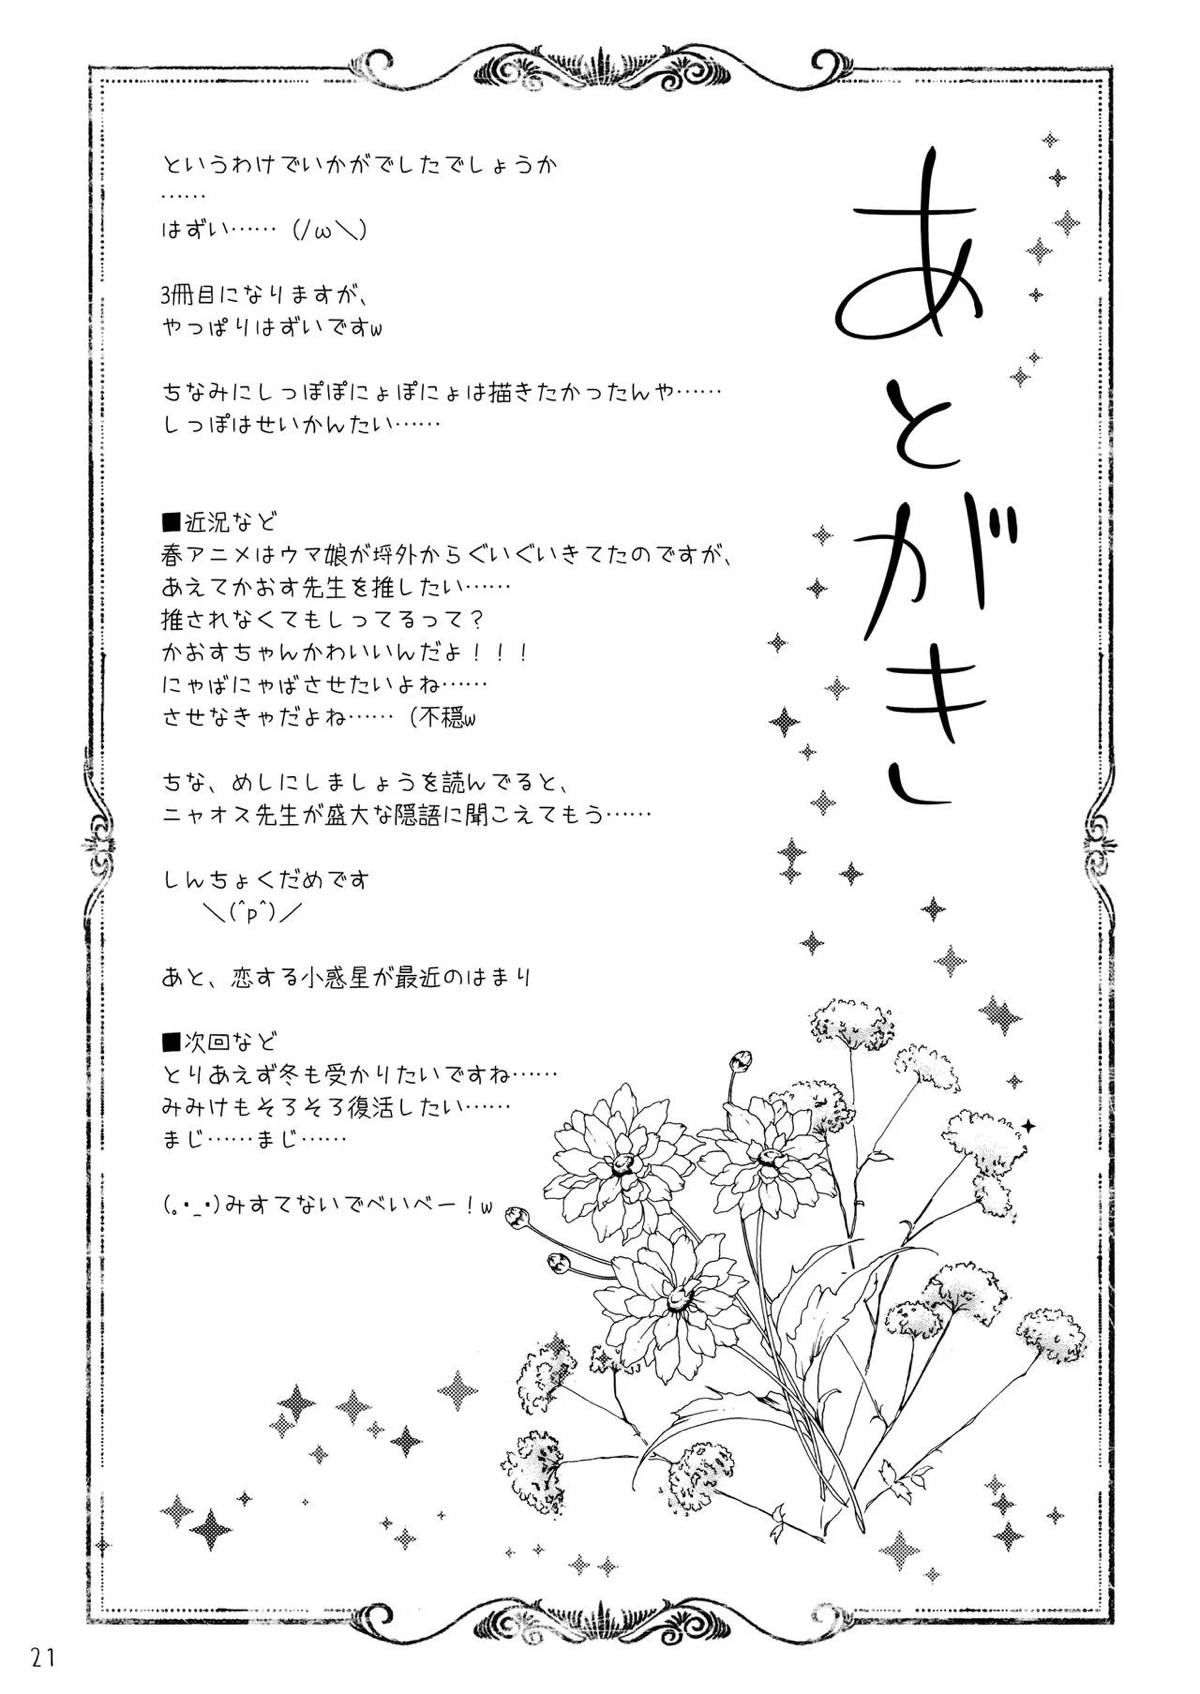 あとがき
というわけでいかがでしたでしょうか
……
はずい……（/ω＼）
3冊目になりますが、
やっぱりはずいですw
ちなみにしっぽぽにょぽにょは描きたかったんや……
しっぽはせいかんたい……
■近況など
春アニメはウマ娘が埒外からぐいぐいきてたのですが、
あえてかおす先生を推したい……
推されなくてもしってるって？
かおすちゃんかわいいんだよ！！！
にゃばにゃばさせたいよね……
させなきゃだよね……（不穏w
ちな、めしにしましょうを読んでると、
ニャオス先生が盛大な隠語に聞こえてもう……
しんちょくだめです
＼(^p^)／
あと、恋する小惑星が最近のはまり
■次回など
とりあえず冬も受かりたいですね……
みみけもそろそろ復活したい……
まじ……まじ……
(｡･_･)みすてないでべいべー！w
21